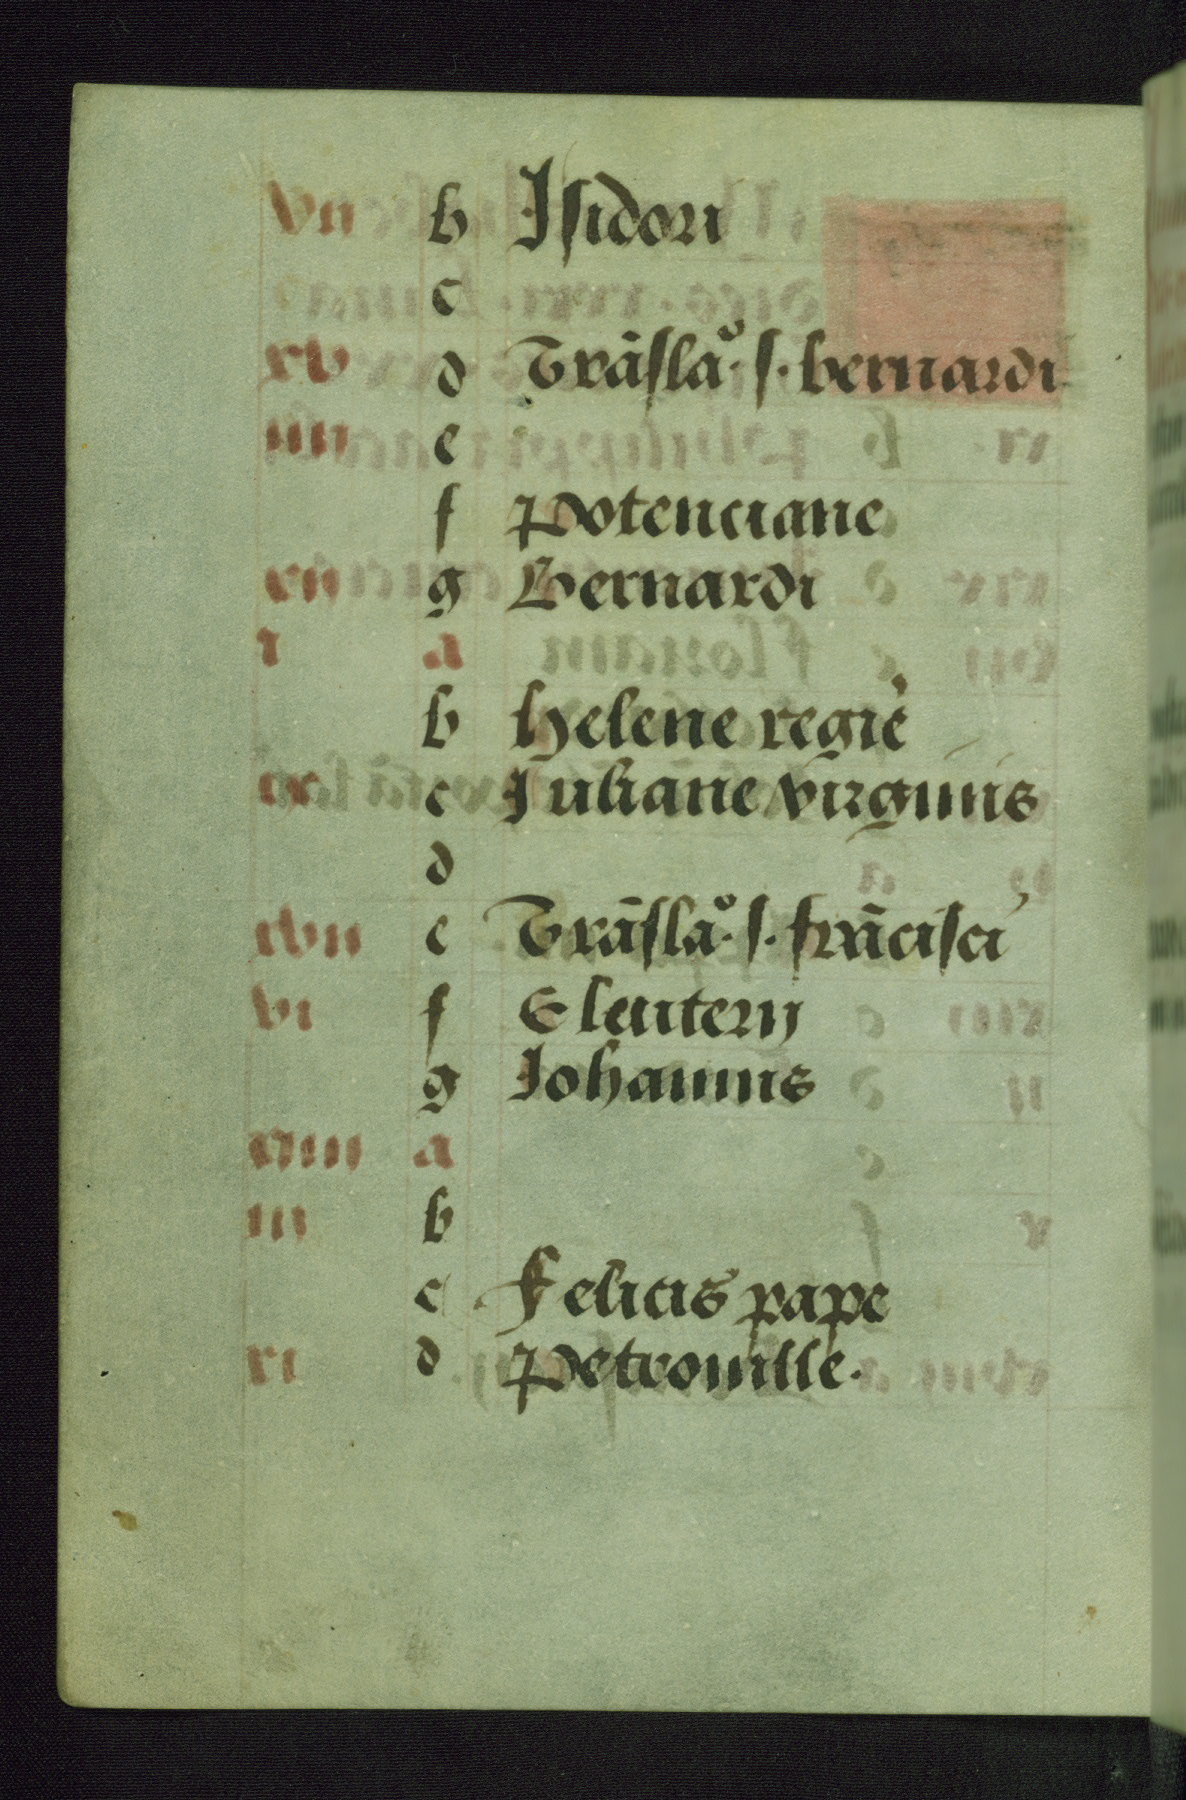 vii b Isidori
c
xv d Trāsla͛o. s. bernardi
iiii e
f Potenciane
xii g Bernardi
i a
b Helene regie
ix c Iuliane virginis
d
xvii e Trāsla͛o. s. frācisci
vi f Eleuterij
g Iohannis
xiiii a
iii b
c Felicis pape
xi d Petronille.